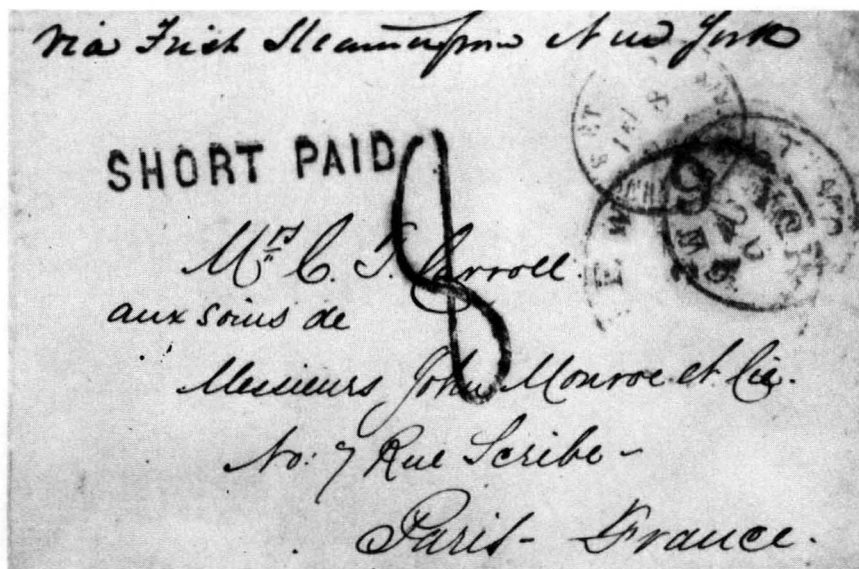 via First Steamer from New York
SHORT PAID
8
Mrs C. T. Carroll
aux soins de
Messieurs John Monroe et Cie.
No: 7 Rue Scribe -
Paris - France.